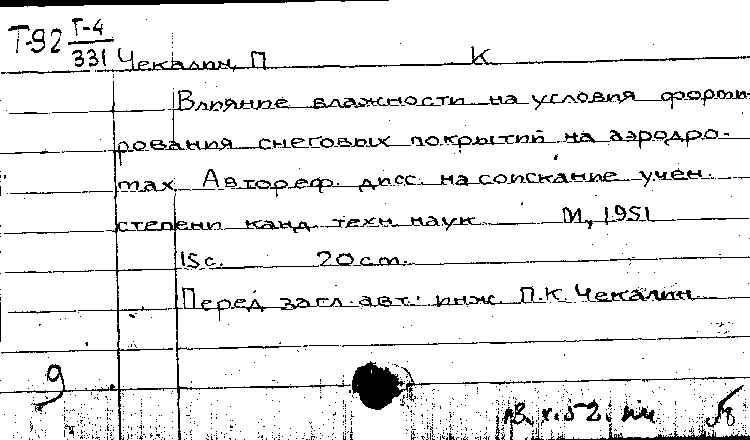 Т-92 Г-4
331 Чекалин, П К
Влияние влажности на условия форми-
рования снеговых покрытий на аэродро-
мах Автореф. дисс. на соискание учен.
степени канд. техн. наук М, 1951
15 с. 20 cm.
Перед загл. авт.: инж. П.К. Чекалин
9